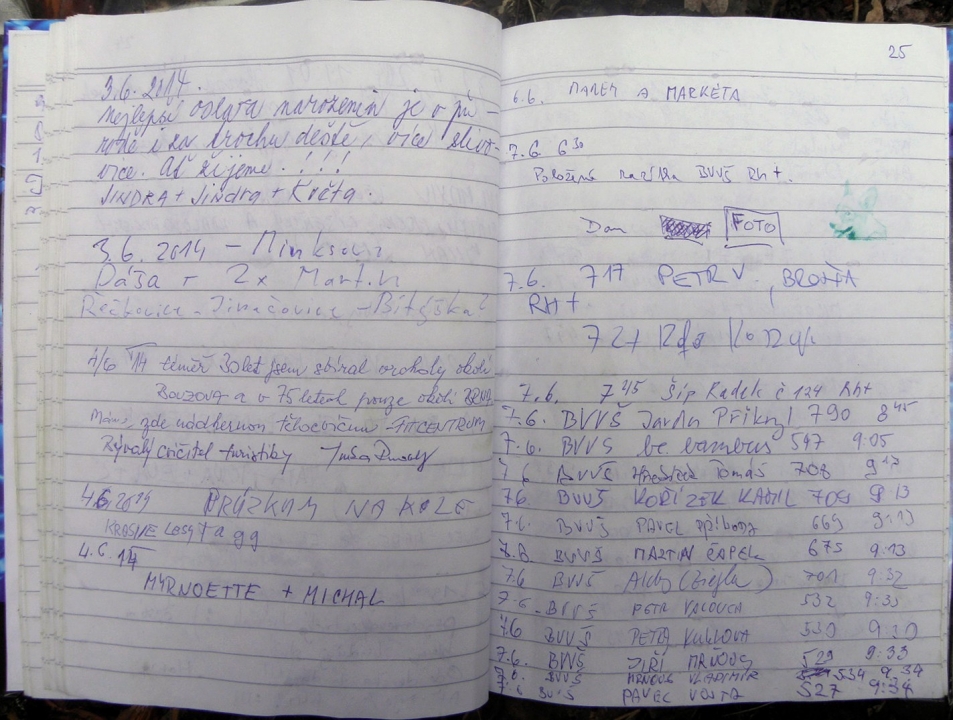 3.6. 2014.
nejlepší oslava narozenin je v pří-
rodě i za trochu deště, více slivo-
vice. Ať žijeme. !!!
JINDRA + Jindra + Květa.
3.6. 2014 -
Dáša + 2x Martin
Řečkovice - Jinačovice - Bítýška
4/6 14 téměř 30 let jsem sbíral vrcholy okolí
BOUZOVA a v 75 letech pouze okolí BRNA.
Máme zde nádhernou tělocvičnu - FITCENTRUM
Bývalý cvičitel turistiky
4.6 2014 PRŮZKUM NA KOLE
KRÁSNÉ LESY
4.6. 14
MYRNOETTE + MICHAL
25
6.6. MAREK A MARKÉTA
7.6. 6 30
Položena razítka BVVŠ RH+.
Dan FOTO
7.6. 717 PETR V., BROŇA
RH+
727
7.6. 7 45 Šíp Radek č 124 RH+
7.6. BVVŠ Přikryl 790 8 45
7.6. BVVŠ 547 9:05
7.6 BVVŠ Tomáš 708 9 13
7.6 BVVŠ KOŘÍZEK KAMIL 709 9 13
7.6. BVVŠ PAVEL 669 9:13
7.6. BVVŠ MARTIN ČAPEK 675 9:13
7.6 BVVŠ 701 9:32
7.6. BVVŠ PETR 532 9:33
7.6 BVVŠ PETRA 530 9:30
7.6. BVVŠ JIŘÍ 529 9:33
7.6. BVVŠ VLADIMÍR 534 9:34
7.6 BVVŠ PAVEL VOSTA 527 9:34